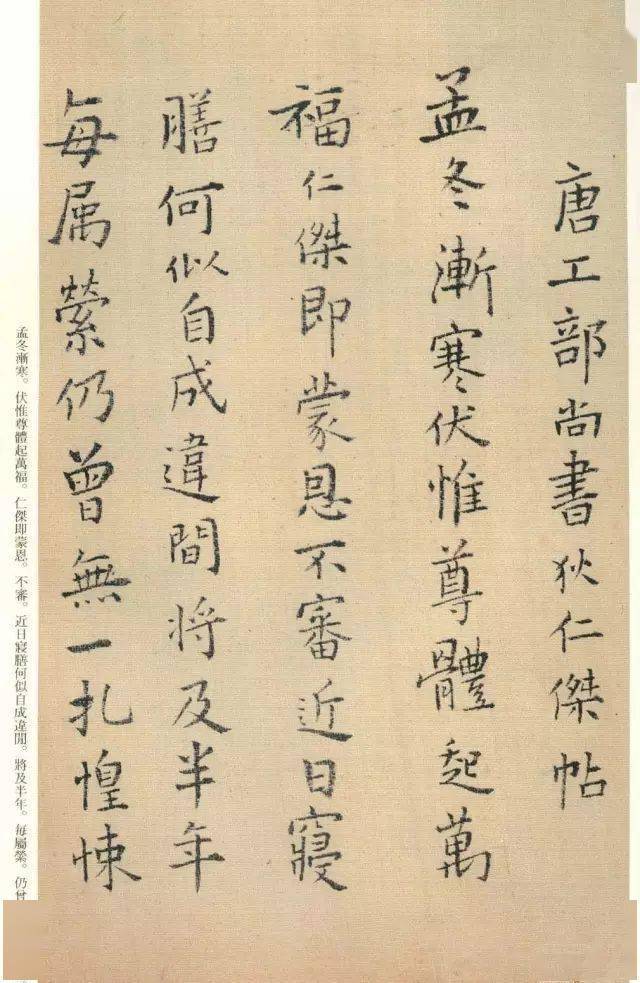 唐工部尚書狄仁傑帖
孟冬漸寒伏惟尊體起萬
福仁傑即蒙恩不審近日寢
膳何似自成違間将及半年
每属縈仍曾無一扎惶悚
孟冬漸寒。伏惟尊體起萬福。仁傑即蒙恩。不審。近日寢膳何似自成違間。將及半年。每屬縈。仍曾